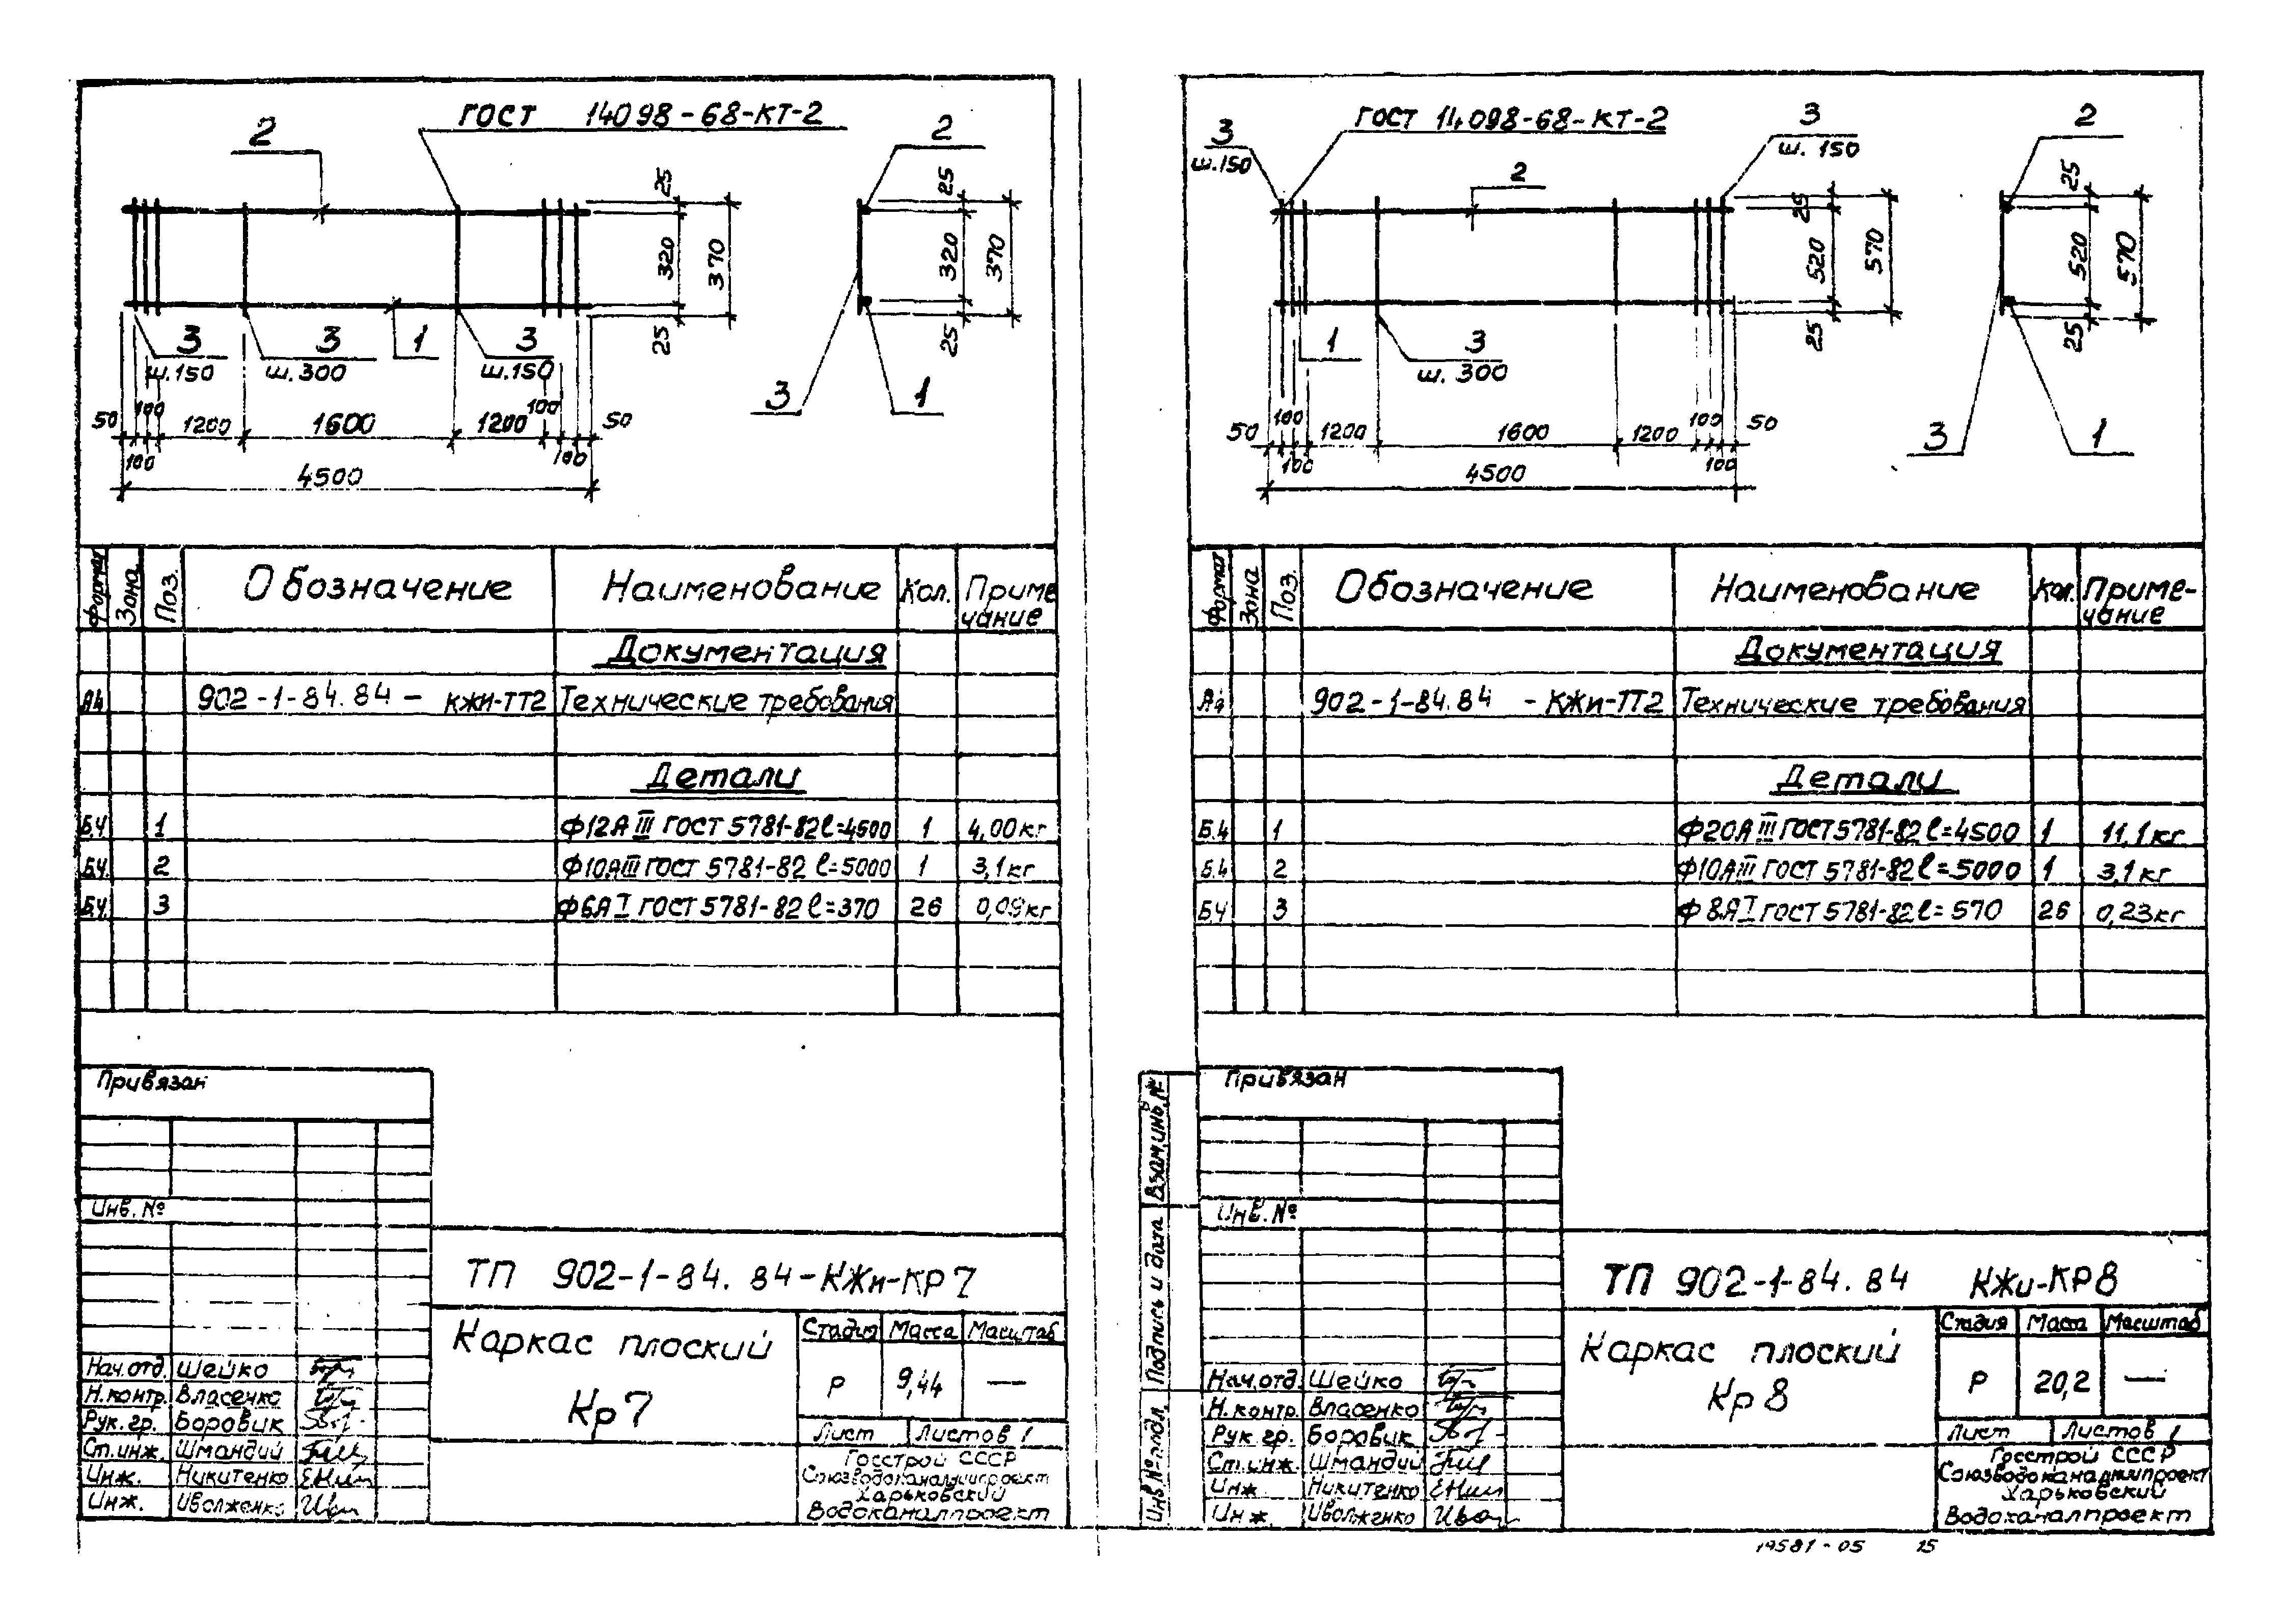 ГОСТ 14098-68-КТ-2
2
2
25
320
370
25
25
320
370
25
3
ш.150
3
ш.300
1
3
ш.150
3
1
50
100
100
1200
1600
1200
100
100
50
4500
Формат
Зона
Поз.
Обозначение
Наименование
Кол.
Приме
чание
Документация
А4 902-1-84.84- КЖИ-ТТ2 Технические требования
Детали
Б.Ч. 1 Ф12А III ГОСТ 5781-82 ℓ=4500 1 4,00кг
Б.Ч. 2 Ф10АIII ГОСТ 5781-82 ℓ=5000 1 3,1кг
Б.Ч. 3 Ф6А I ГОСТ 5781-82 ℓ=370 26 0,09кг
Привязан
Инв. №
ТП 902-1-84.84-КЖи-КР7
Каркас плоский
Кр7
Стадия Масса Масштаб
Р 9,44 —
Лист Листов 1
Госстрой СССР
Союзводоканалниипроект
Харьковский
Водоканалпроект
Нач.отд. Шейко
Н.контр. Власенко
Рук. гр. Боровик
Ст.инж. Шмандий
Инж. Никитенко
Инж. Иволженко
3
ш.150
ГОСТ 14098-68-КТ-2
3
ш. 150
2
2
25
520
570
25
25
520
570
25
1
3
ш. 300
3
1
50
100
100
1200
1600
1200
100
100
50
4500
Формат
Зона
Поз.
Обозначение
Наименование
Кол.
Приме-
чание
Документация
А4 902-1-84.84 -КЖи-ТТ2 Технические требования
Детали
Б.4 1 Ф20А III ГОСТ 5781-82 ℓ=4500 1 11,1кг
Б.4 2 Ф10АIII ГОСТ 5781-82 ℓ=5000 1 3,1кг
Б.Ч 3 Ф 8А I ГОСТ 5781-82 ℓ= 570 26 0,23кг
Привязан
Инв. №
Взам.инв.№
Подпись и дата
Инв.№подл.
ТП 902-1-84.84 КЖи-КР8
Каркас плоский
Кр8
Стадия Масса Масштаб
Р 20,2 —
Лист Листов 1
Госстрой СССР
Союзводоканалниипроект
Харьковский
Водоканалпроект
Нач.отд. Шейко
Н.контр. Власенко
Рук.гр. Боровик
Ст.инж. Шмандий
Инж Никитенко
Инж. Иволженко
19581-05 15